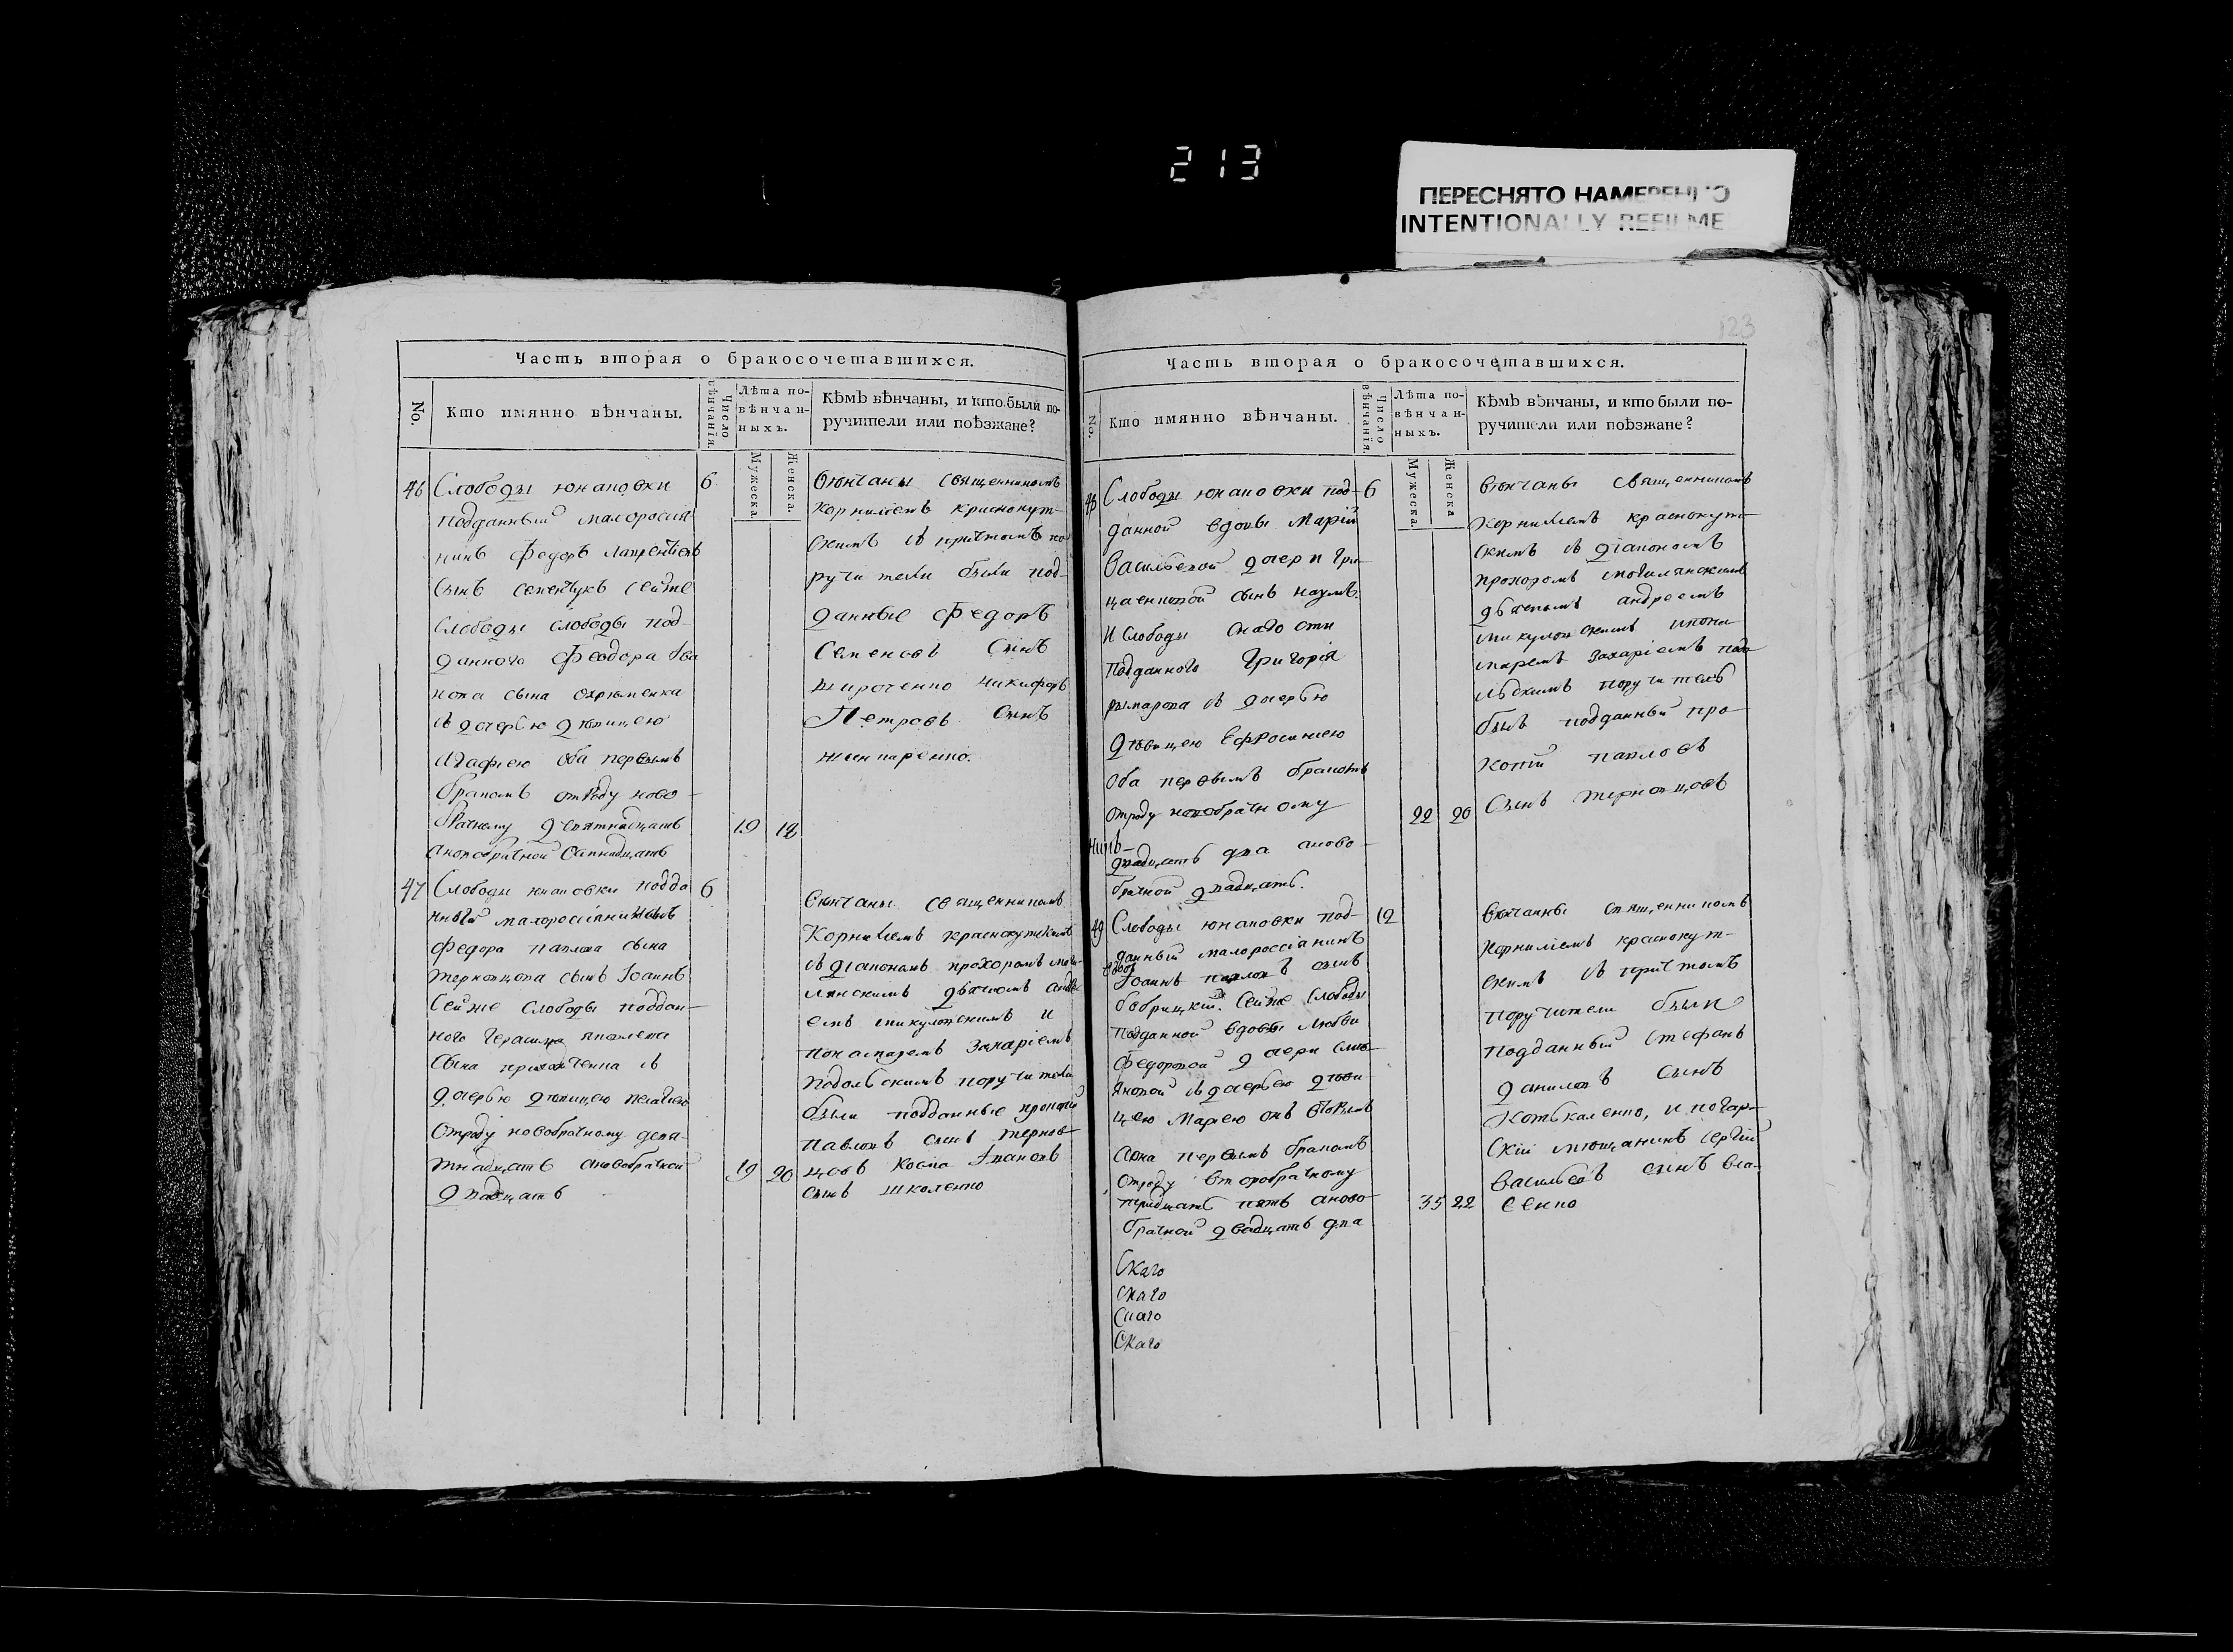 213
ПЕРЕСНЯТО НАМЕРЕННО
INTENTIONALLY REFILME
123
Часть вторая о бракосочетавшихся.
No.
Кто имянно вѣнчаны.
Число вѣнчанія.
Лѣта повѣнчанныхъ.
Мужеска.
Женска.
Кѣмъ вѣнчаны, и кто были по-
ручители или поѣзжане?
46
Слободы юнаповки
подданный малоросия-
нинъ федоръ лаврентіевъ
Сынъ сейже
Слободы слободы под-
данного Феодора Ива
нова сына
съ дочерью дѣвицею
Агафіею оба первымъ
бракомъ отроду ново-
брачному девятнадцать
ановобрачной
6
19 18
Вѣнчаны священникомъ
Корниліемъ краснокут-
скимъ съ причтомъ по
ручители были под-
данные Федоръ
Семеновъ Сынъ
никифоръ
Петровъ Сынъ
47
Слободы юнаповки подда
нного малоросіянина
федора павлова сына
терновцова сынъ Іоаннъ
Сейже слободы поддан-
ного Герасима яковлева
Сына съ
дочерью дѣвицею пелагіею
Отроду новобрачному девя-
тнадцать ановобрачной
двадцать
6
19 20
Вѣнчаны священникомъ
Корниліемъ краснокутскимъ
съ діакономъ прохоромъ моги-
лянскимъ дьячкомъ андре
емъ микуловскимъ и
понамаремъ Захаріемъ
подольскимъ поручители
были подданные прокопій
павловъ сынъ терно-
вцовъ Косма Ивановъ
сынъ школенко
Часть вторая о бракосочетавшихся.
No.
Кто имянно вѣнчаны.
Число вѣнчанія.
Лѣта повѣнчанныхъ.
Мужеска.
Женска
Кѣмъ вѣнчаны, и кто были по-
ручители или поѣзжане?
48
Слободы юнаповки под-
данной вдовы Маріи
Васильевой дочери Гри-
цаенковой сынъ наумъ.
И слободы
Подданного Григорія
рымарова съ дочерью
дѣвицею Ефросиніею
Оба первымъ бракомъ
отроду новобрачному
двадцать два аново-
брачной двадцать.
6
22 20
Вѣнчаны священникомъ
Корниліемъ краснокут-
скимъ съ діакономъ
прохоромъ могилянскимъ
дьячкомъ андреемъ
микуловскимъ
Захаріемъ подо
льскимъ поручитель
былъ подданный про-
копій павловъ
Сынъ терновцовъ
49
Слободы юнаповки под-
данный малороссіанинъ
вдовъ
Іоаннъ павловъ сынъ
бобрицкій. Сейже слободы
подданной вдовы любви
Федоровой дочери
съ дочерью дѣви-
цею Маріею онъ вторымъ
аона первымъ бракомъ
отроду второбрачному
тридцать пять аново-
брачной двадцать два
12
35 22
Вѣнчанны священникомъ
Корниліемъ краснокут-
скимъ съ причтомъ
поручители были
подданный стефанъ
даниловъ сынъ
и
мѣщанинъ сергій
васильевъ сынъ вла-
сенко
Скаго
Скаго
Скаго
Скаго